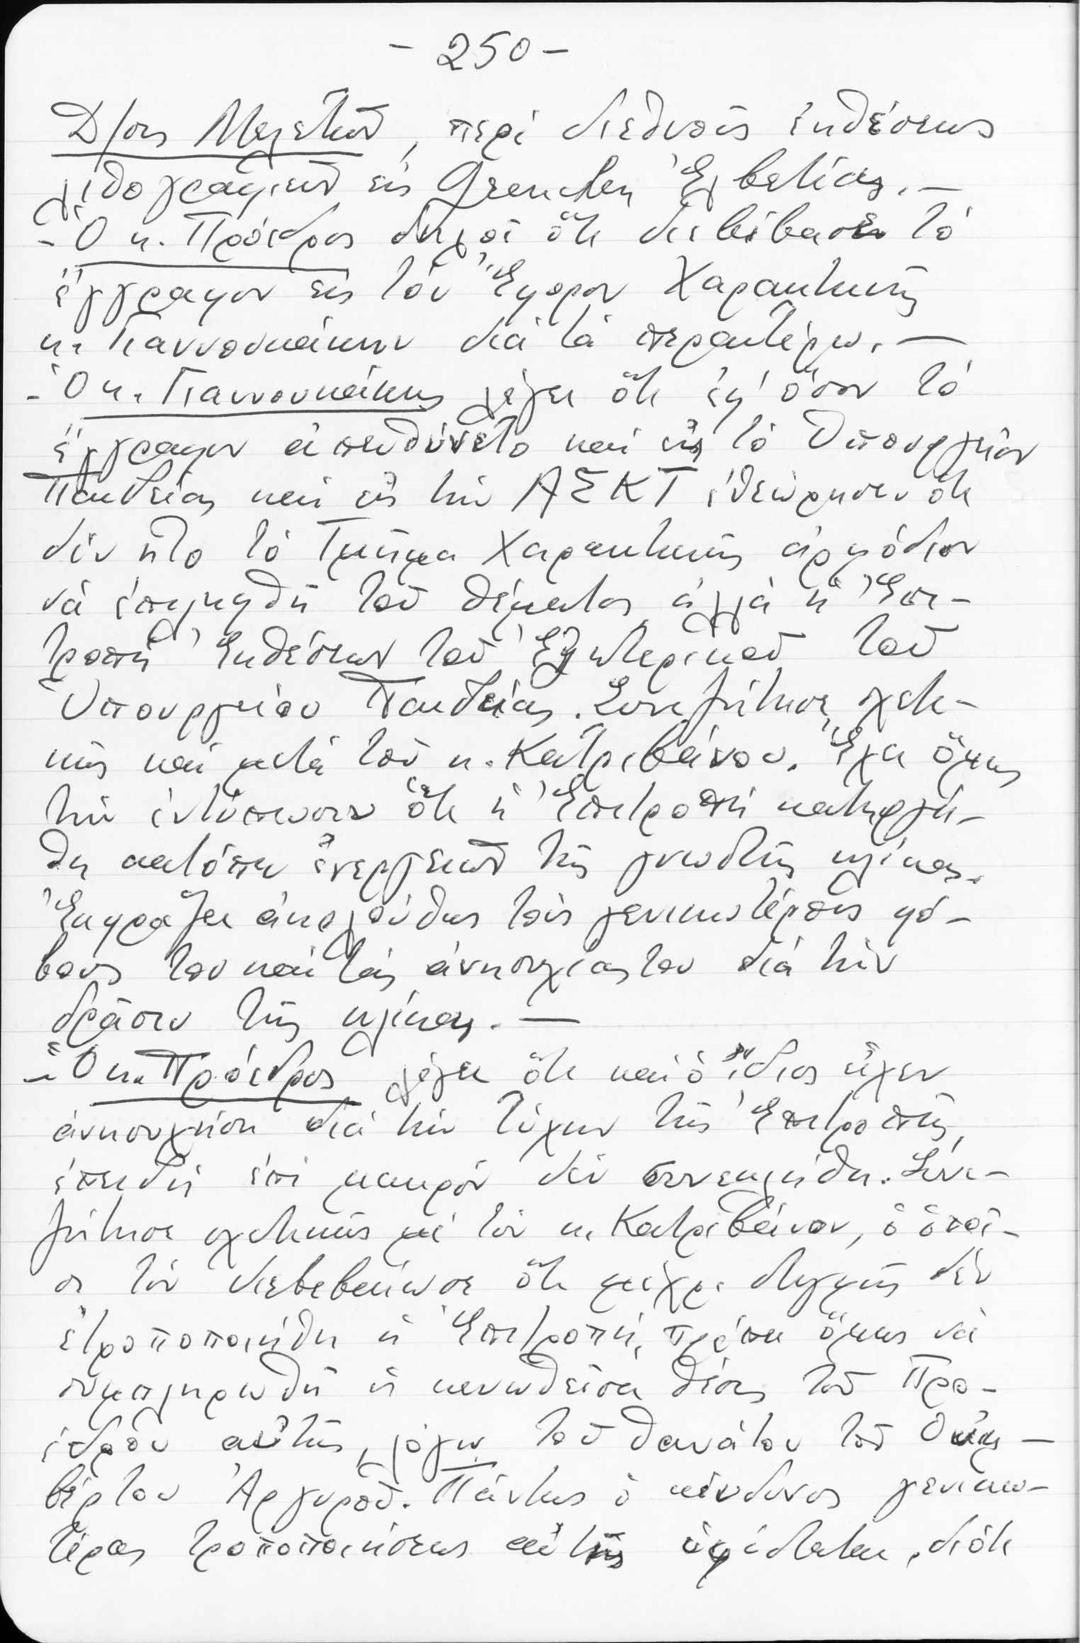 - 250 -
Δ/σις Μελετῶν, περί διεθνοῦς ἐκθέσεως
λιθογραφιῶν εἰς Grenchen Ἑλβετίας. —
- Ὁ κ. Πρόεδρος δηλοῖ ὅτι διεβίβασεν τό
ἔγγραφον εἰς τόν Ἔφορον Χαρακτικῆς
κ. Γιαννουκάκην διά τά περαιτέρω. —
- Ὁ κ. Γιαννουκάκης λέγει ὅτι ἐφ' ὅσον τό
ἔγγραφον ἀπευθύνετο καί εἰς τό Ὑπουργεῖον
Παιδείας καί εἰς τήν ΑΣΚΤ ἐθεώρησεν ὅτι
δέν ἦτο τό Τμῆμα Χαρακτικῆς ἁρμόδιον
νά ἐπιληφθῆ τοῦ θέματος ἀλλά ἡ Ἐπι-
τροπή Ἐκθέσεων τοῦ Ἐξωτερικοῦ τοῦ
Ὑπουργείου Παιδείας. Συνεζήτησε σχετι-
κῶς καί μετά τοῦ κ. Κατριβάνου. Ἔχει ὅμως
τήν ἐντύπωσιν ὅτι ἡ Ἐπιτροπή κατηργή-
θη κατόπιν ἐνεργειῶν τῆς γνωστῆς κλίκας.
Ἐκφράζει ἀκολούθως τούς γενικωτέρους φό-
βους του καί τάς ἀνησυχίας του διά τήν
δρᾶσιν τῆς κλίκας. —
- Ὁ κ. Πρόεδρος λέγει ὅτι καί ὁ ἴδιος εἶχεν
ἀνησυχήσει διά τήν τύχην τῆς Ἐπιτροπῆς,
ἐπειδή ἐπί μακρόν δέν συνεκλήθη. Συνε-
ζήτησε σχετικῶς μέ τόν κ. Κατριβάνον, ὁ ὁποῖ-
ος τόν διεβεβαίωσε ὅτι μέχρι στιγμῆς δέν
ἐτροποποιήθη ἡ Ἐπιτροπή, πρέπει ὅμως νά
συμπληρωθῆ ἡ κενωθεῖσα θέσις τοῦ Προ-
έδρου αὐτῆς, λόγω τοῦ θανάτου τοῦ Οὐμ-
βέρτου Ἀργυροῦ. Πάντως ὁ κίνδυνος γενικω-
τέρας τροποποιήσεως αὐτῆς ὑφίσταται, διότι